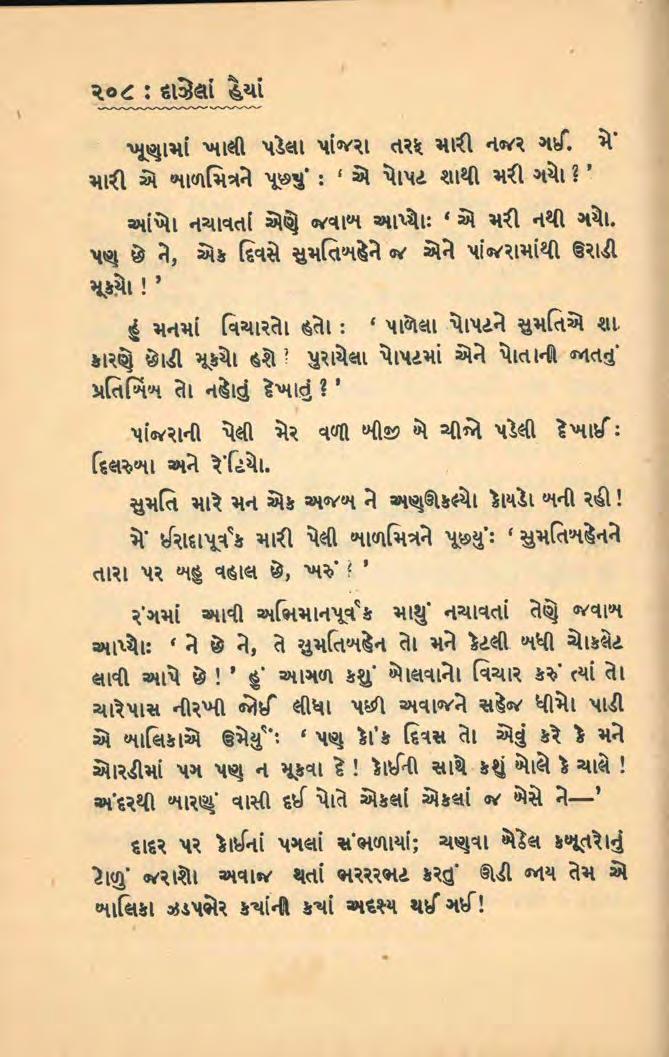 ૨૦૮ : દાઝેલાં હૈયાં
ખૂણામાં ખાલી પડેલા પાંજરા તરફ મારી નજર ગઈ. મેં
મારી એ બાળમિત્રને પૂછ્યું : ‘ એ પોપટ શાથી મરી ગયો ? ’
આંખો નચાવતાં એણે જવાબ આપ્યોઃ ‘ એ મરી નથી ગયો.
પણ છે ને, એક દિવસે સુમતિબહેને જ એને પાંજરામાંથી ઉરાડી
મૂક્યો ! ’
હું મનમાં વિચારતો હતો : ‘ પાળેલા પોપટને સુમતિએ શા
કારણે છોડી મૂક્યો હશે ? પુરાયેલા પોપટમાં એને પોતાની જાતનું
પ્રતિબિંબ તો નહોતું દેખાતું ? ’
પાંજરાની પેલી મેર વળી બીજી બે ચીજો પડેલી દેખાઈ :
દિલરુબા અને રેંટિયો.
સુમતિ મારે મન એક અજબ ને અણઊકલ્યો કોયડો બની રહી !
મેં ઈરાદાપૂર્વક મારી પેલી બાળમિત્રને પૂછ્યુંઃ ‘ સુમતિબહેનને
તારા પર બહુ વહાલ છે, ખરું ? ’
રંગમાં આવી અભિમાનપૂર્વક માથું નચાવતાં તેણે જવાબ
આપ્યોઃ ‘ ને છે ને, તે સુમતિબહેન તો મને કેટલી બધી ચોકલેટ
લાવી આપે છે ! ’ હું આગળ કશું બોલવાનો વિચાર કરું ત્યાં તો
ચારેપાસ નીરખી જોઈ લીધા પછી અવાજને સહેજ ધીમો પાડી
એ બાલિકાએ ઉમેર્યુંઃ ‘ પણ કો’ક દિવસ તો એવું કરે કે મને
ઓરડીમાં પગ પણ ન મૂકવા દે ! કોઈની સાથે કશું બોલે કે ચાલે !
અંદરથી બારણું વાસી દઈ પોતે એકલાં એકલાં જ બેસે ને—’
દાદર પર કોઈનાં પગલાં સંભળાયાં; ચણવા બેઠેલ કબૂતરોનું
ટોળું જરાશો અવાજ થતાં ભરરરભટ કરતું ઊડી જાય તેમ એ
બાલિકા ઝડપભેર ક્યાંની ક્યાં અદશ્ય થઈ ગઈ !